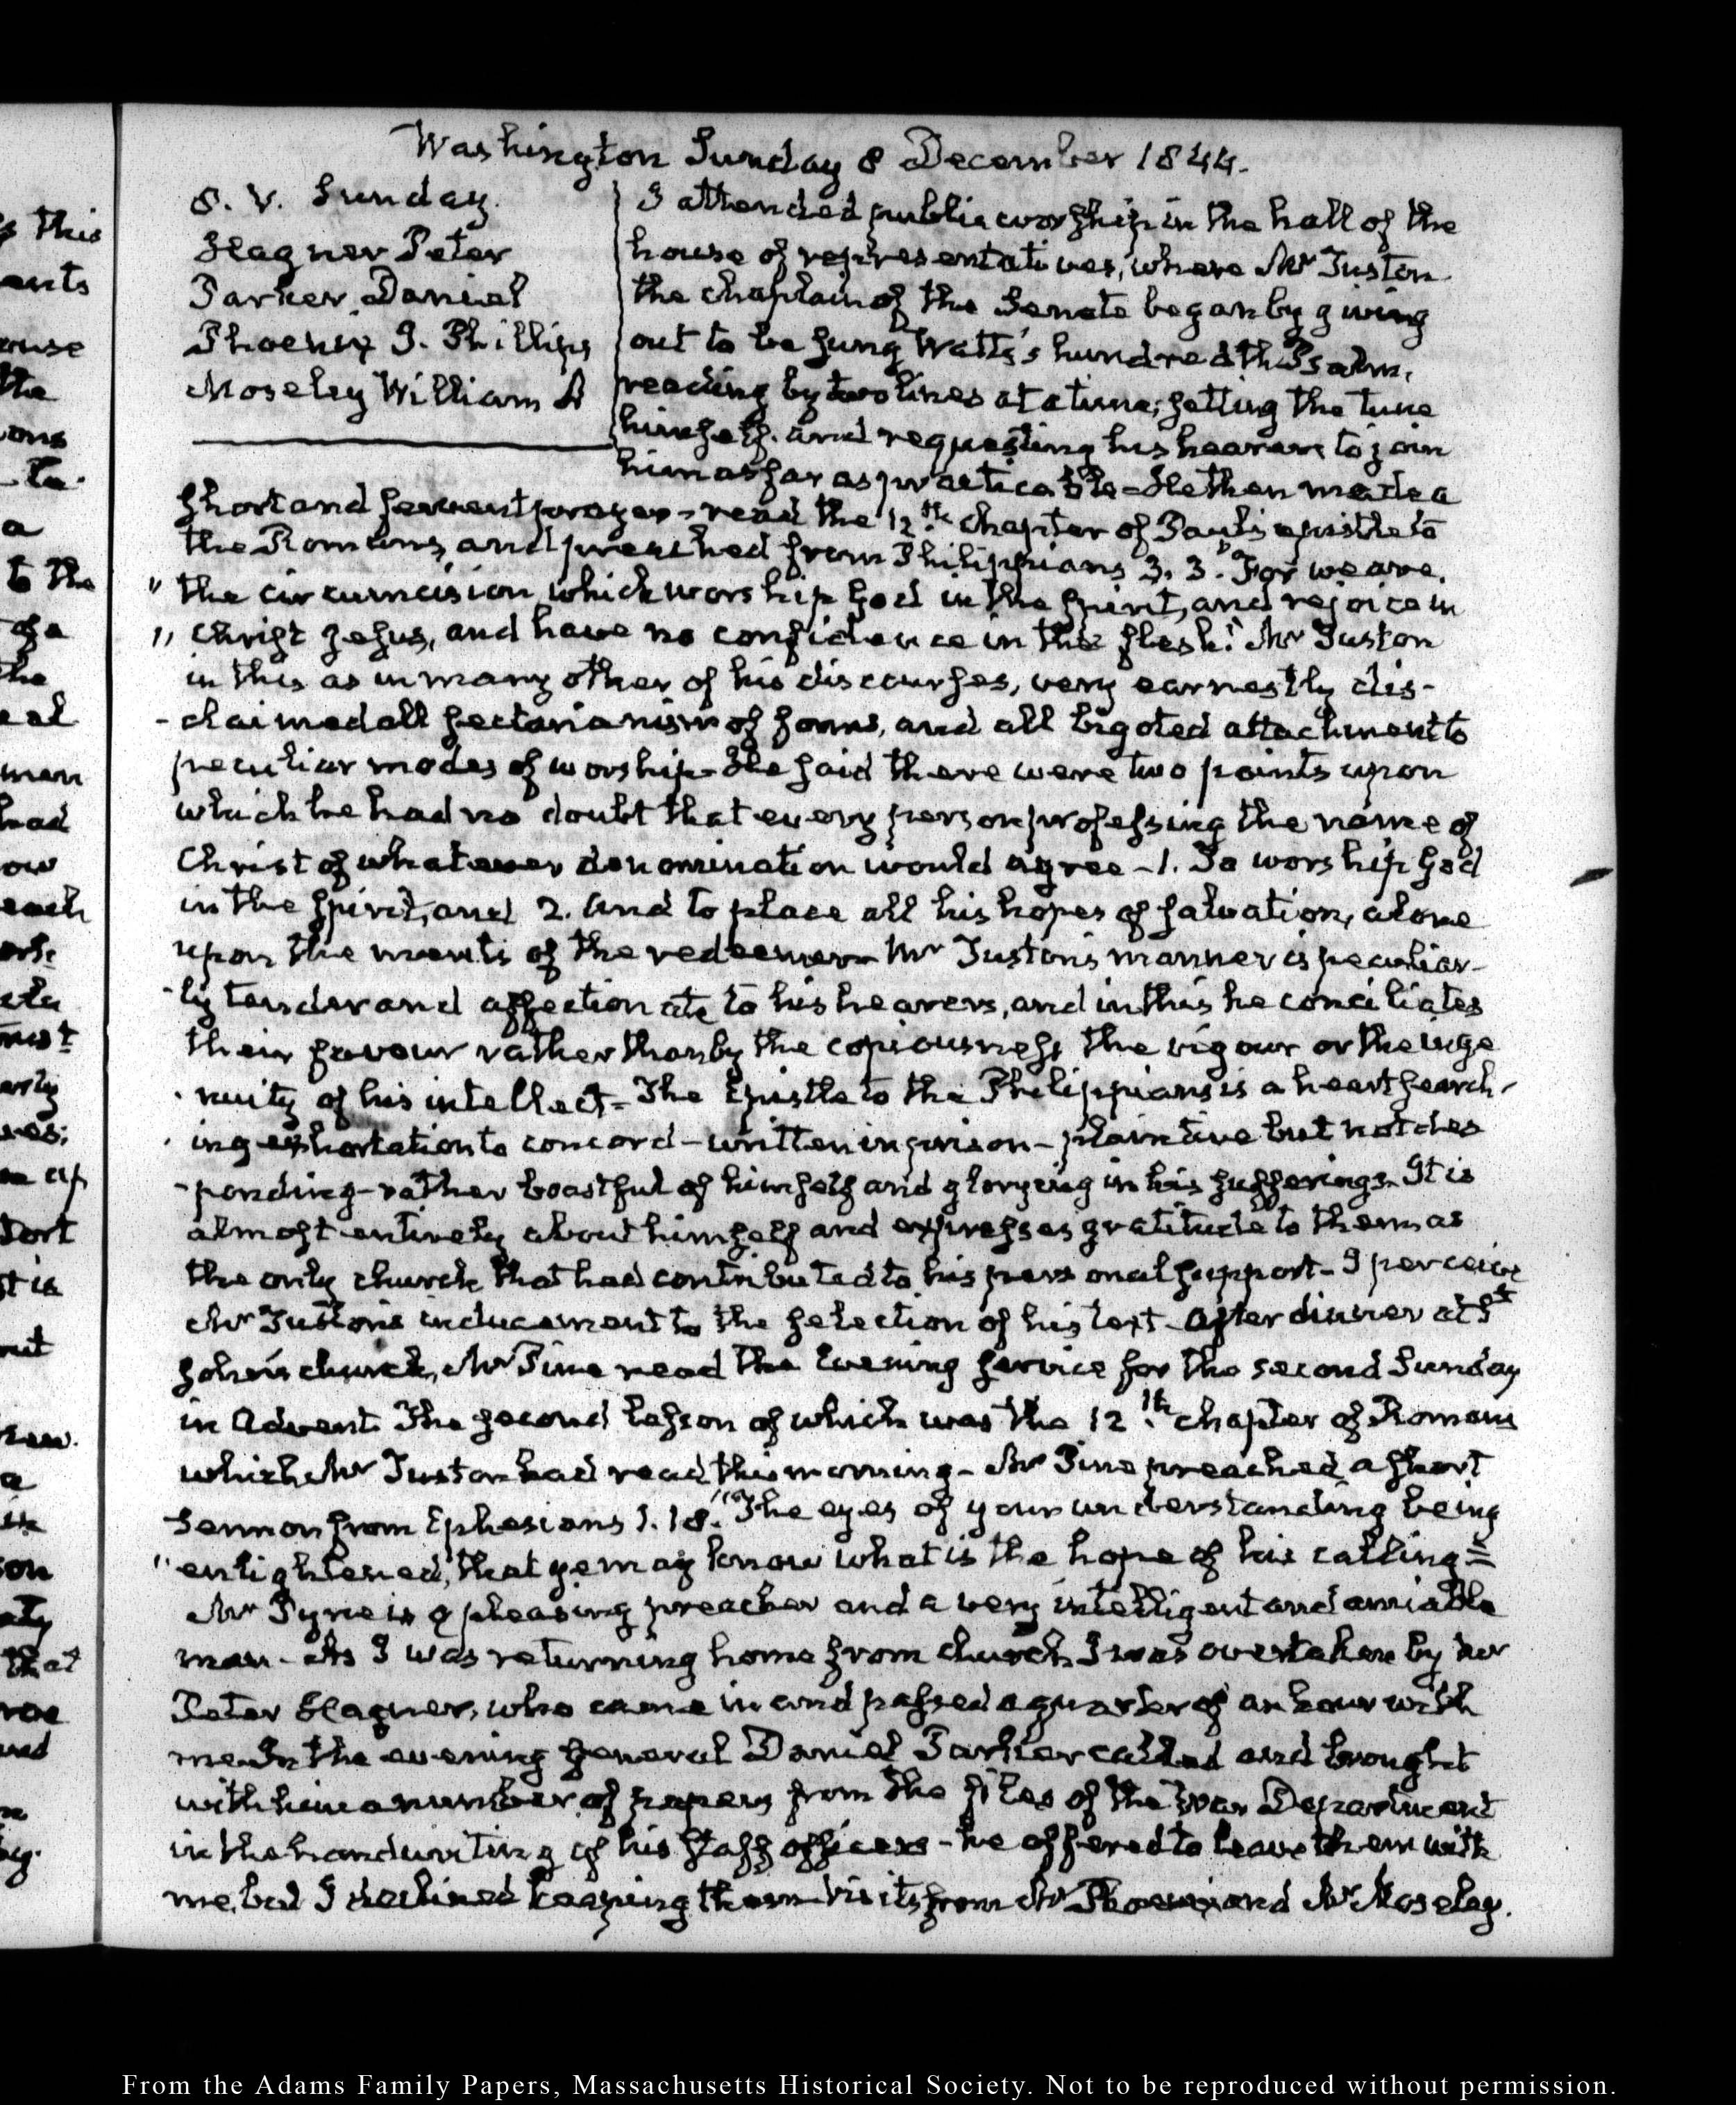 Washington Sunday 8 December 1844.
8. V. Sunday.
Hagner Peter
Parker, Daniel
Phoenix J. Phillips
Moseley William A
I attended public worship in the hall of the
house of representatives, where Mr Tuston
the chaplain of the Senate began by giving
out to be sung Watts's hundredth Psalm,
reading by two lines at a time, setting the tune
himself. and requesting his hearers to join
him as far as practicable – He then made a
short and fervent prayer – read the 12th chapter of Paul's epistle to
the Romans, and preached from Philippians 3. 3. "For we are,
" the circumcision which worship God in the spirit, and rejoice in
" Christ Jesus, and have no confidence in the flesh." Mr Tuston
in this as in many other of his discourses, very earnestly dis-
- claimed all sectarianism of forms, and all bigoted attachment to
peculiar modes of worship – He said there were two points upon
which he had no doubt that every person professing the name of
Christ of whatever denomination would agree – 1. To worship God
in the spirit, and 2. And to place all his hopes of salvation, alone
upon the merits of the redeemer – Mr Tuston's manner is peculiar-
- ly tender and affectionate to his hearers, and in this he conciliates
their favour rather than by the copiousness, the vigour or the inge
- nuity of his intellect – The Epistle to the Philippians is a heart search-
- ing exhortation to concord – written in prison – plaintive but not des
- ponding – rather boastful of himself and glorying in his sufferings. It is
almost entirely about himself and expresses gratitude to them as
the only church that had contributed to his personal support – I perceive
Mr Tuston's inducement to the selection of his text – After dinner at St
John's church, Mr Pine read the Evening service for the second Sunday
in Advent. The second lesson of which was the 12th chapter of Romans
which Mr Tuston had read this morning – Mr Pine preached a short
sermon from Ephesians 1. 18. "The eyes of your understanding being
" enlightened, that ye may know what is the hope of his calling" –
Mr Pyne is a pleasing preacher and a very intelligent and amiable
man – As I was returning home from church I was overtaken by Mr
Peter Hagner, who came in and passed a quarter of an hour with
me. In the evening General Daniel Parker called and brought
with him a number of papers from the files of the War Department
in the handwriting of his staff officers – he offered to leave them with
me, but I declined keeping them – Visits from Mr Phoenix and Mr Moseley.
From the Adams Family Papers, Massachusetts Historical Society. Not to be reproduced without permission.